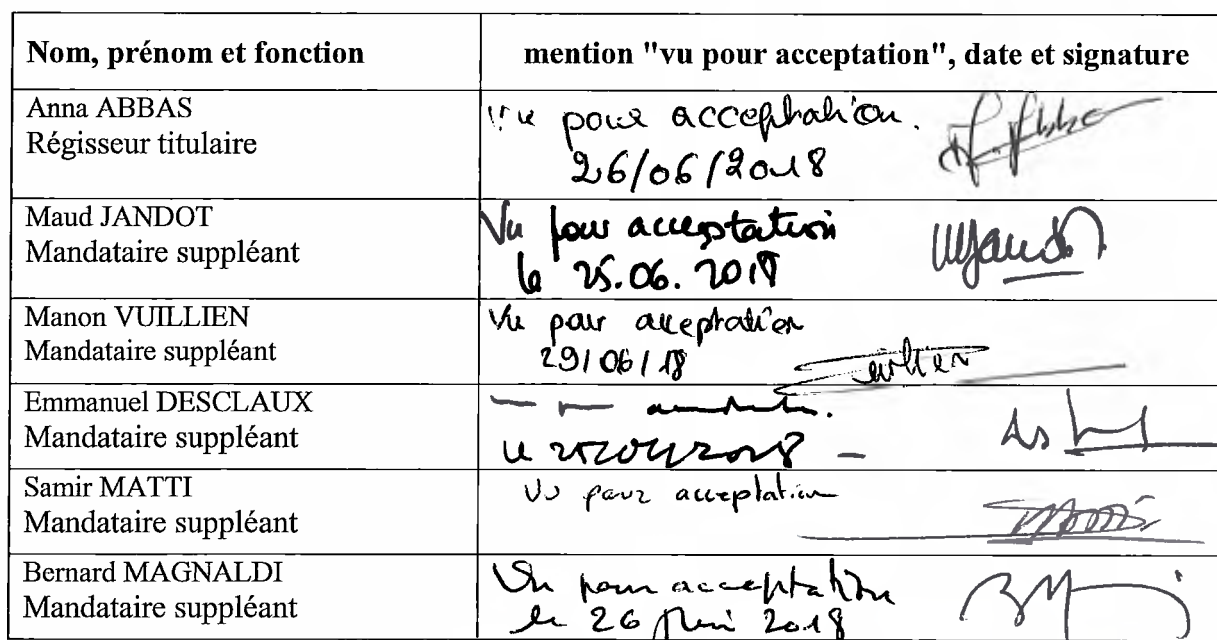 Nom, prénom et fonction
mention "vu pour acceptation", date et signature
Anna ABBAS
Régisseur titulaire
Vu pour acceptation.
26/06/2018
Maud JANDOT
Mandataire suppléant
Vu pour acceptation
le 25.06.2018
Manon VUILLIEN
Mandataire suppléant
Vu pour acceptation
29/06/18
Emmanuel DESCLAUX
Mandataire suppléant
Samir MATTI
Mandataire suppléant
Vu pour acceptation
Bernard MAGNALDI
Mandataire suppléant
Vu pour acceptation
le 26 2018